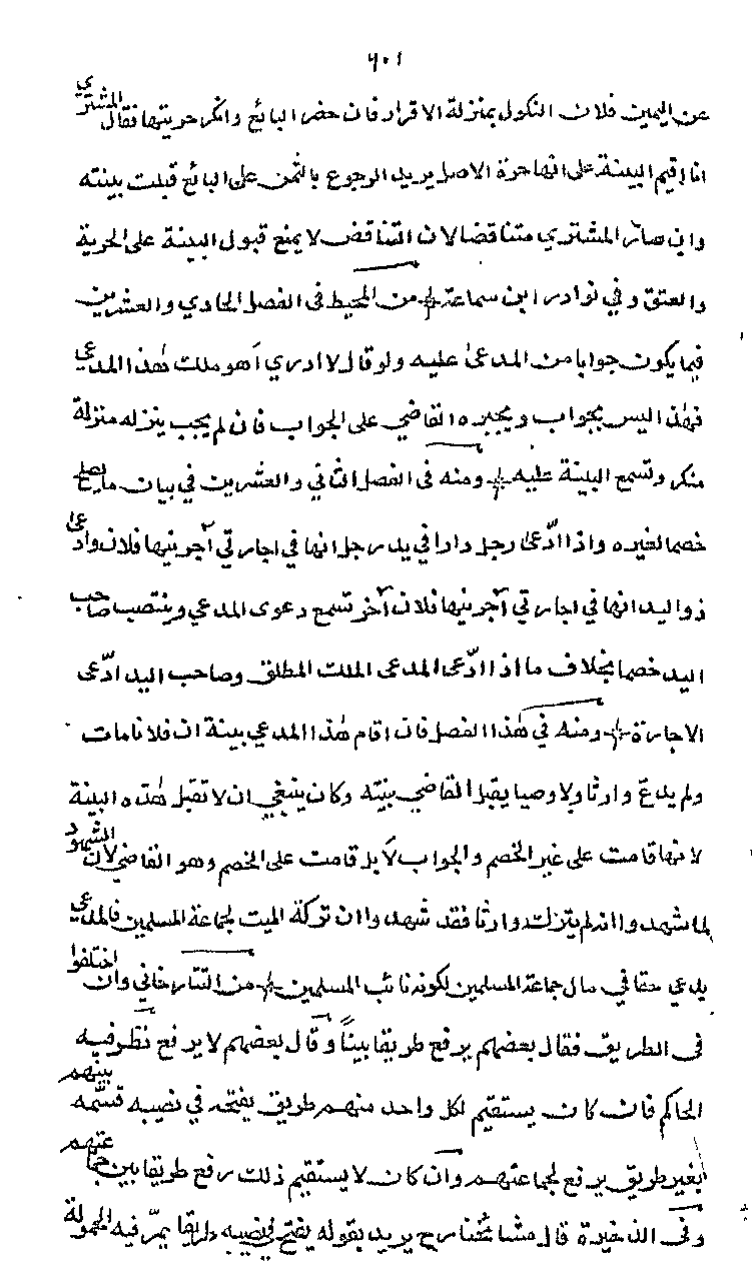 ٦٠١
عن اليمين فلان النكول بمنزلة الاقرار فان حضر البائع وانكر حريتها فقال المشتري
انا اقيم البينة على انها حرة الاصل يريد الرجوع بالثمن على البائع قبلت بينته
وان صار المشتري متناقضا لان التناقض لا يمنع قبول البينة على الحرية
والعتق وفي نوادر ابن سماعة من المحيط في الفصل الحادي والعشرين
فيما يكون جوابا من المدعى عليه ولو قال لا ادري أهو ملك هذا المدعي
فهذا ليس بجواب ويجبره القاضي على الجواب فان لم يجب ينزله منزلة
منكر وتسمع البينة عليه ومنه في الفصل الثاني والعشرين في بيان ما يصلح
خصما لغيره واذا ادّعى رجل دارا في يد رجل انها في اجارتي آجرنيها فلان وادعى
ذو اليد انها في اجارتي آجرنيها فلان آخر تسمع دعوى المدعي وينتصب صاحب
اليد خصما بخلاف ما اذا ادّعى المدعى الملك المطلق وصاحب اليد ادّعى
الاجارة ومنه في هذا الفصل فان اقام هذا المدعي بينة ان فلانا مات
ولم يدع وارثا ولا وصيا يقبل القاضي بينته وكان ينبغي ان لا تقبل هذه البينة
لانها قامت على غير الخصم والجواب لا بل قامت على الخصم وهو القاضي لان الشهود
لما شهدوا انه لم يترك وارثا فقد شهدوا ان تركة الميت لجماعة المسلمين فالمدعي
يدعي حقا في مال جماعة المسلمين لكونه نائب المسلمين من التتارخاني وان اختلفوا
في الطريق فقال بعضهم يرفع طريقا بينا وقال بعضهم لا يرفع نظر فيه
الحاكم فان كان يستقيم لكل واحد منهم طريق يفتحه في نصيبه قسمه بينهم
بغير طريق يرفع لجماعتهم وان كان لا يستقيم ذلك رفع طريقا بين جماعتهم
وفي الذخيرة قال مشائخنا رح يريد بقوله يفتح في نصيبه طريقا يمرّ فيه الحمولة